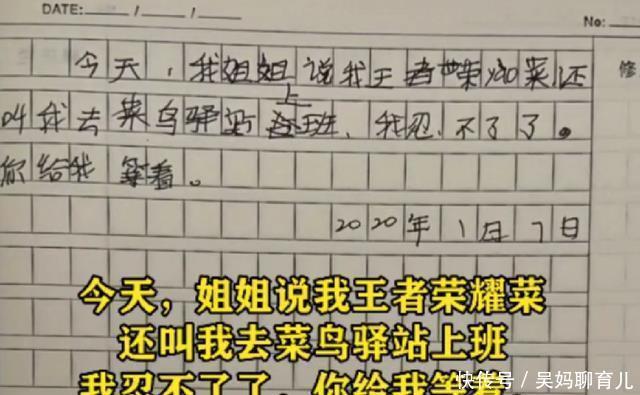 DATE: / /
No:
今天，我姐姐说我王者荣耀菜还
修
叫我去菜鸟驿站上班，我忍不了了。
你给我等着。
2020年1月7日
今天，姐姐说我王者荣耀菜
还叫我去菜鸟驿站上班
我忍不了了，你给我等着
快传号／吴妈聊育儿